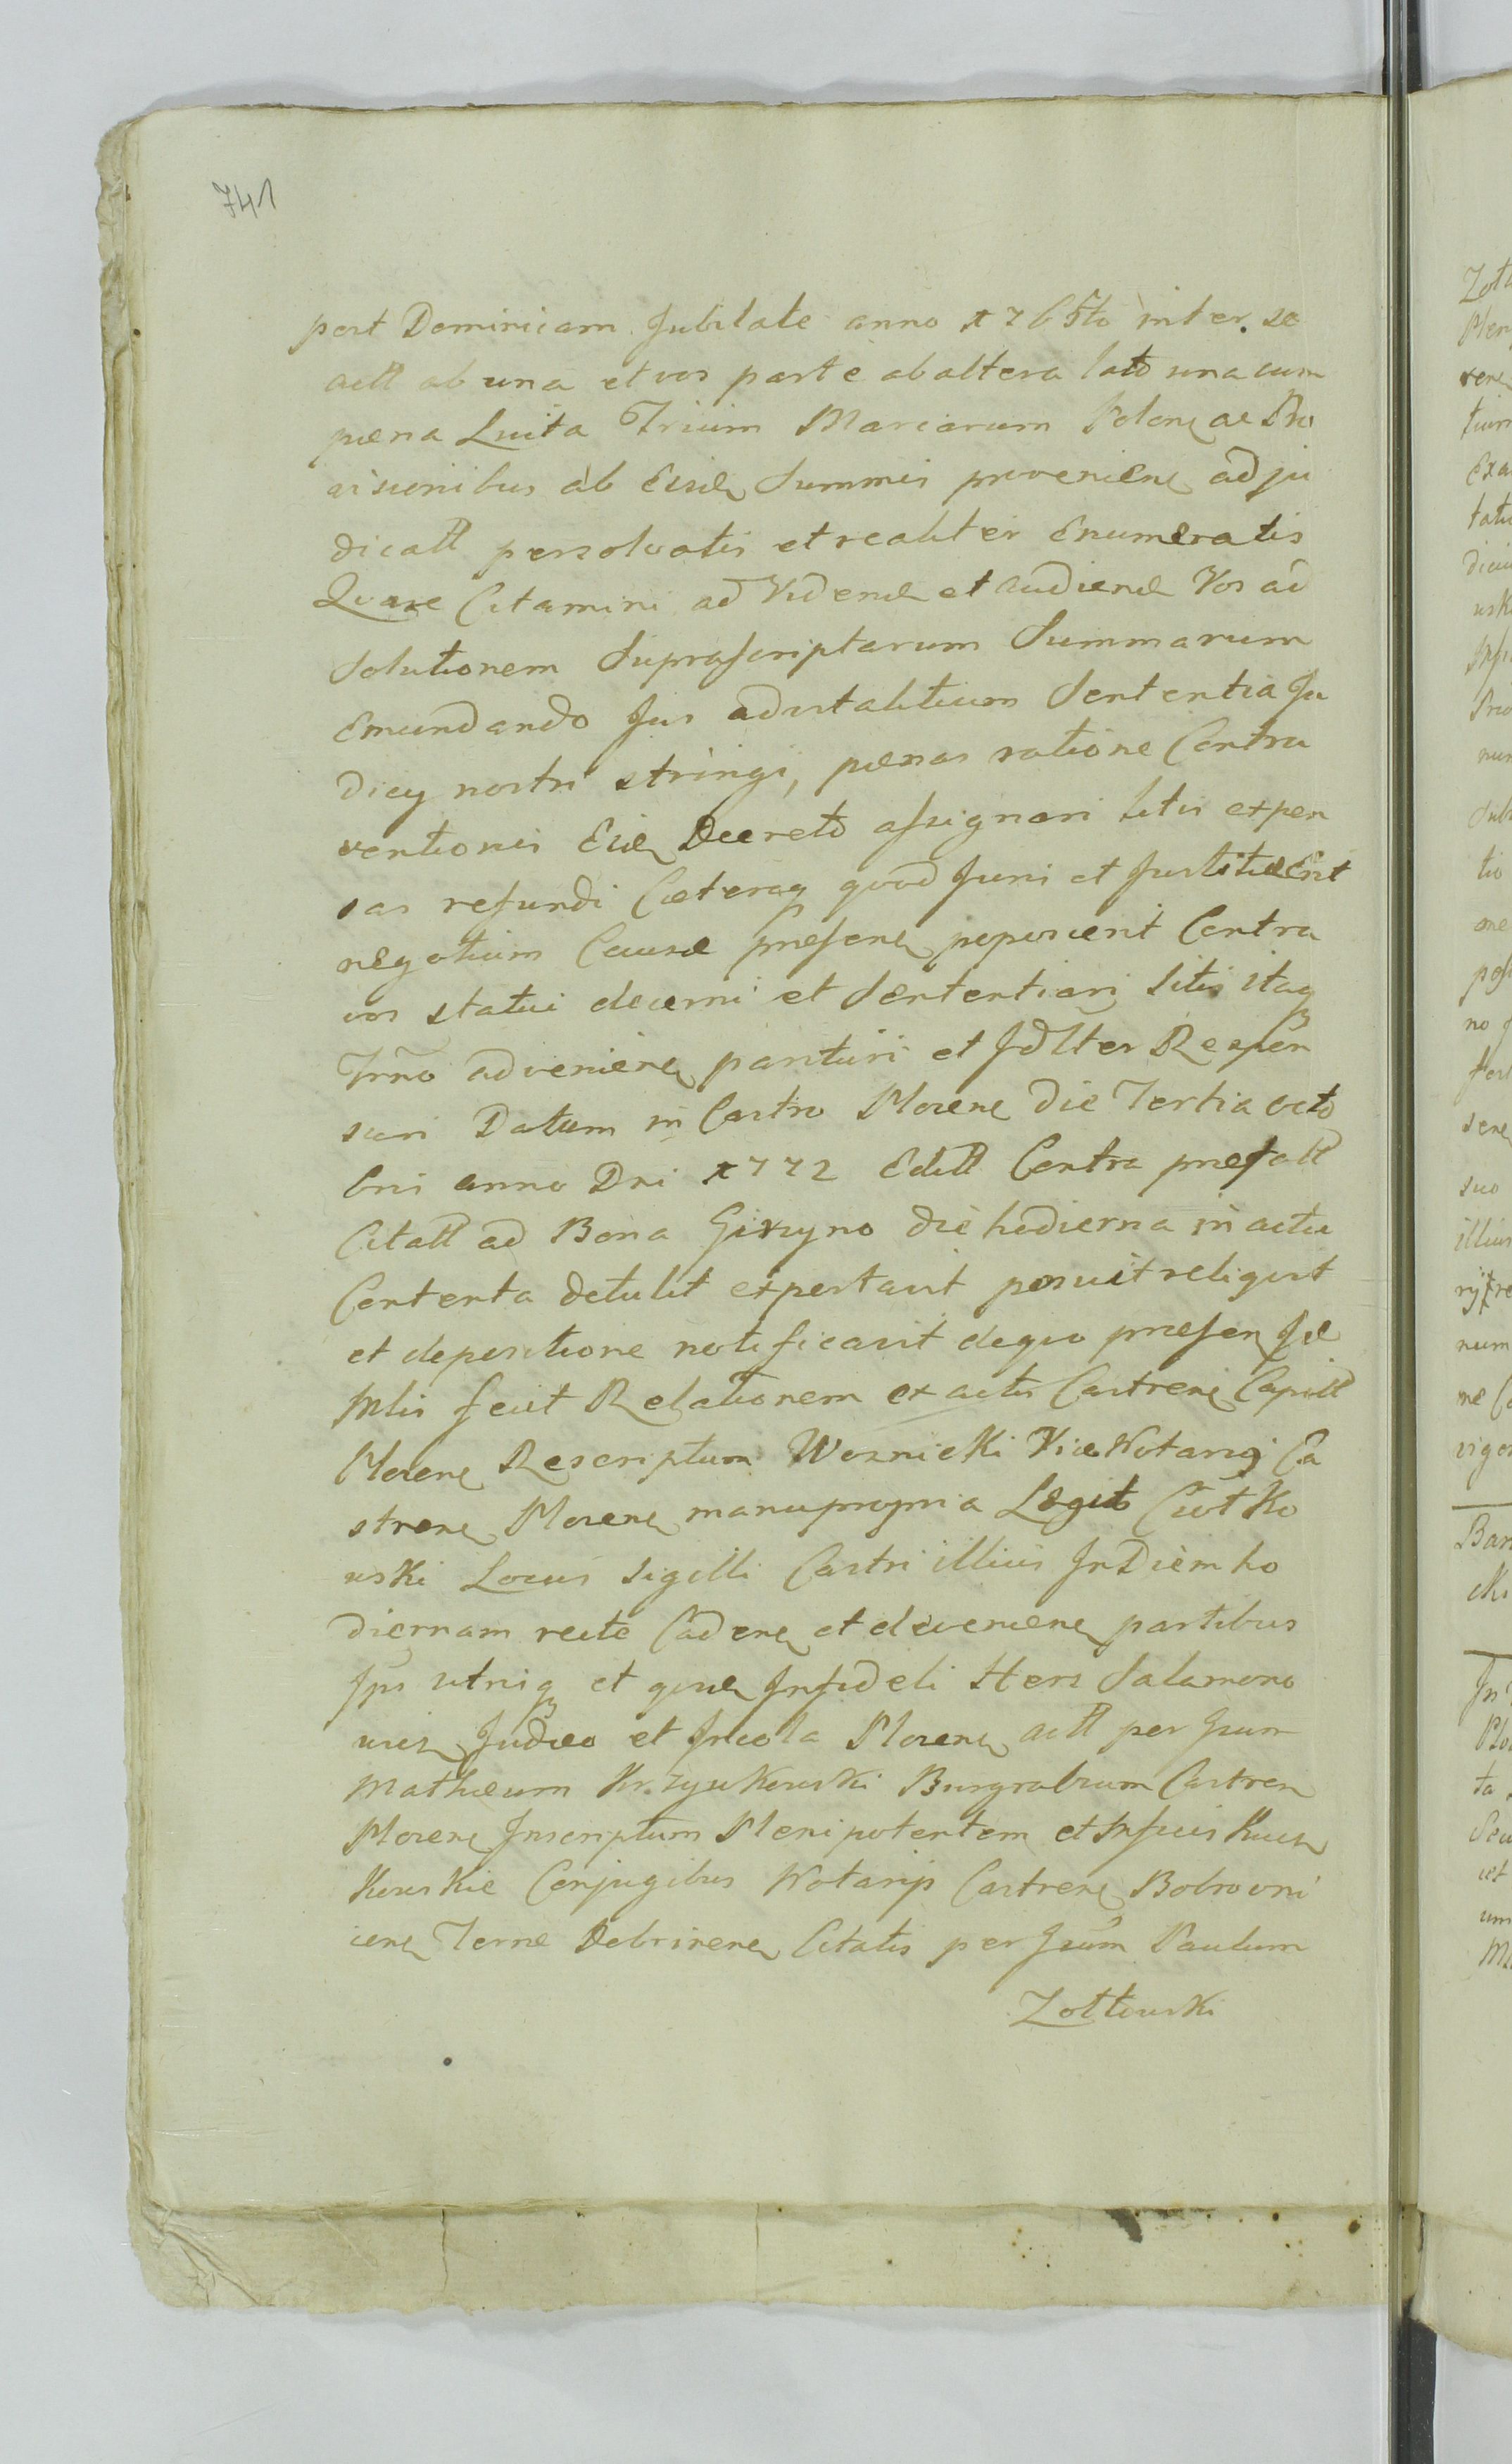 741
post Dominicam Jubilate anno 1765to inter se
actt ab una et vos parte ab altera lato una cum
pœna Luita Trium Marcarum Polonę ac Pro
visionibus ab Eisdę Summis provenienę adju
dicatt persolvatis et realiter Enumeratis
Quare Citamini ad Videnđ et audienđ Vos ad
Solutionem Suprascriptarum Summarum
Emundando Jus advitalitium Sententia Ju
dicy nostri stringi, pœnas ratione Contra
ventionis Eidę Decreto assignari litis expen
sas refundi Cæteraq quod Juri et Justitiæ Ent
negotium Causæ præsenę poposcerit Contra
vos statui decerni et Sententiari Sitis itaq
Trño advenienę parituri et Jdlter Respon
suri Datum in Castro Plocenę Die Tertia octo
bris anno Dni 1772 Editt Contra præfatt
Citatt ad Bona Giżyno die hodierna in actu
Contenta detulit exportavit posuit reliquit
et depositione notificavit de quo præsen Jd
Mlis fecit Relationem ex actis Castrenę Capitt
Plocenę Rescriptum Woznicki Vice Notarij Ca
strenę Plocenę manupropria Legit Ciotko
wski Locus Sigilli Castri illius In Diem ho
diernam recte Cadenę et devenienę partibus
Jps utriq et quidę Infideli Hers Salamono
wicz Judæo et Incola Plocenę actt per Gsum
Mathæum Krzyukowski Burgrabium Castren
Plocenę Inscriptum Plenipotentem et Mfcis
kowskie Conjugibus Notarijs Castrenę Bobrowni
cenę Terræ Dobrinenę Citatis per Gsum Paulum
Zołtowski